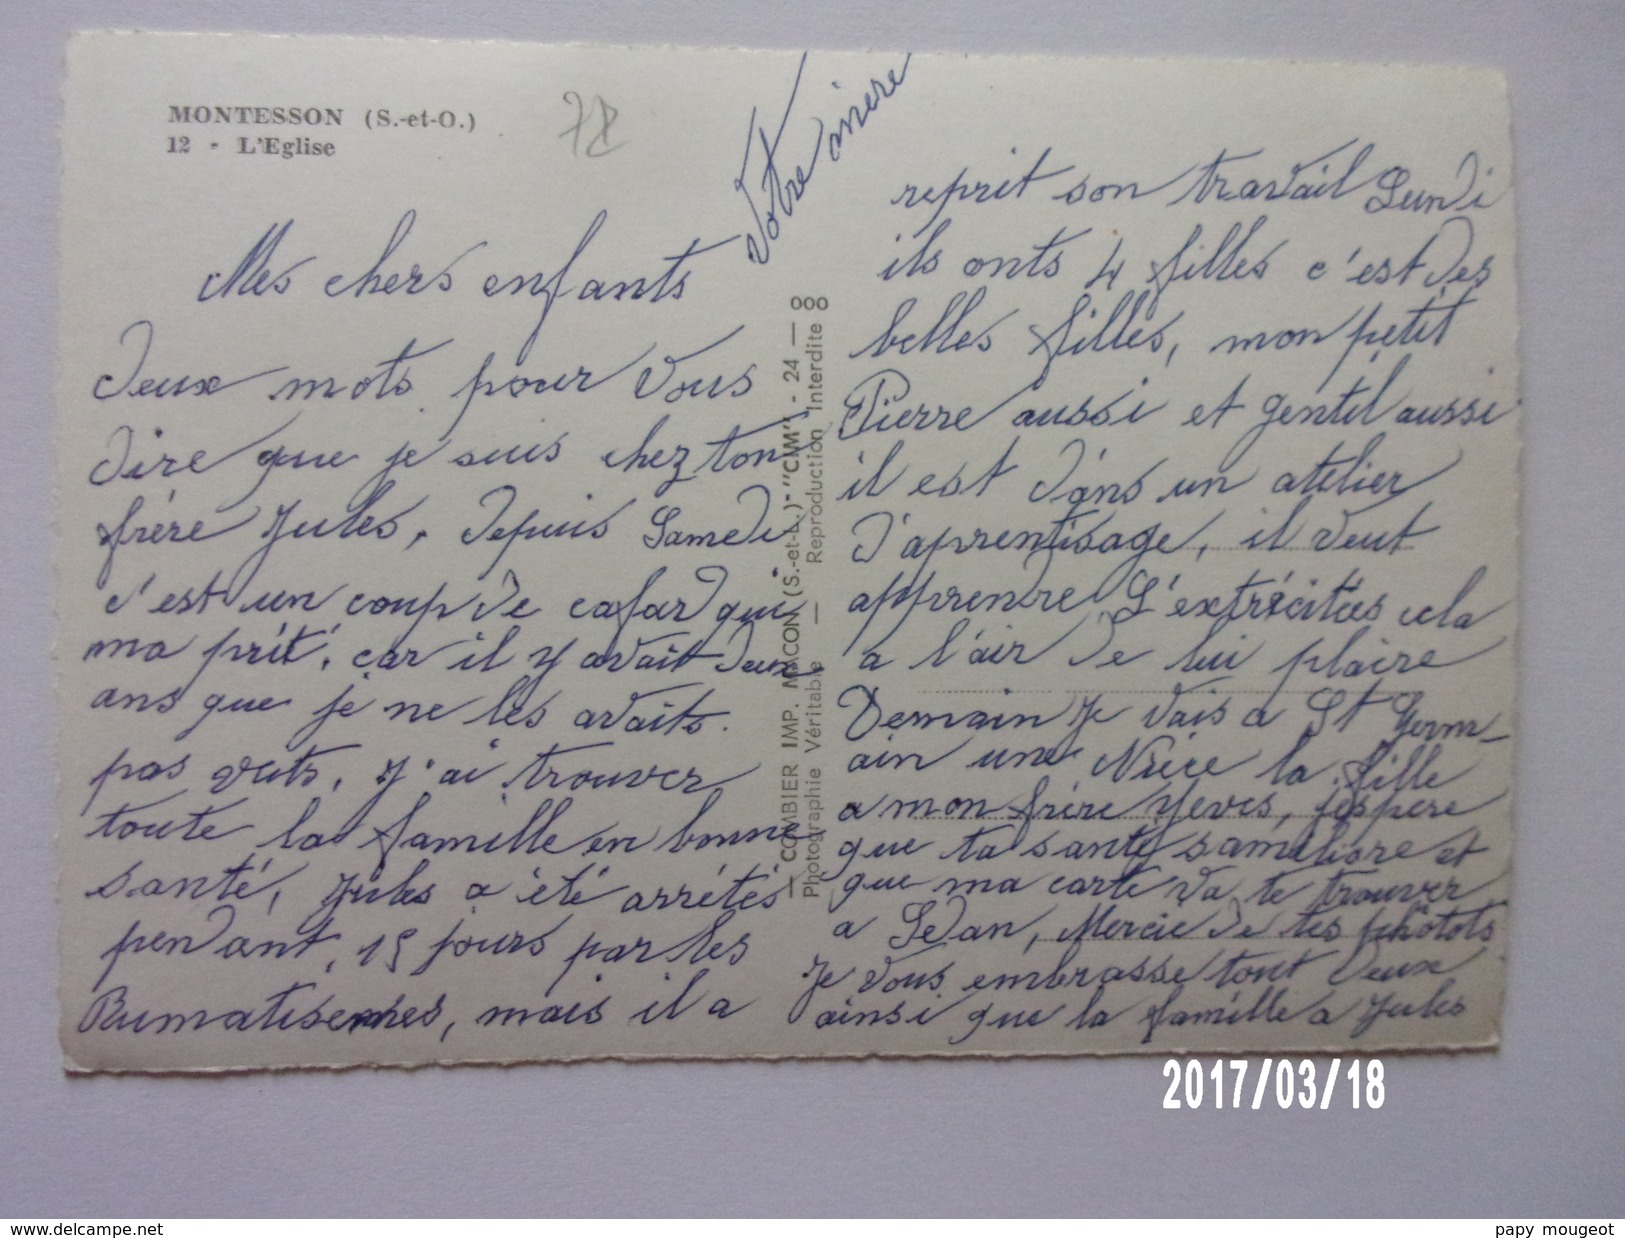 MONTESSON (S.-et-O.)
12 - L'Eglise
78
Mes chers enfants
Deux mots pour vous
dire que je suis chez ton
frère Jules, depuis Samedi
c'est un coup de cafard qui
ma prit, car il y avait deux
ans que je ne les avaits
pas vuts, j'ai trouver
toute la famille en bonne
santé, Jules a été arrétés
pendant 15 jours par les
Rumatisemes, mais il a
reprit son travail Lundi
ils onts 4 filles c'est des
belles filles, mon petit
Pierre aussi et gentil aussi
il est dans un atelier
d'aprentisage, il veut
apprendre L'extricitées cela
a l'air de lui plaire
Demain je vais a St Germ-
ain une Nièce la fille
a mon frère Yeves, j'espere
que ta santé saméliore et
que ma carte va te trouver
a Sedan, Mercie de tes photots
je vous embrasse tout deux
ainsi que la famille a Jules
Votre
— COMBIER IMP. MACON (S.-et-L.)- "CIM" - 24 — 000
Photographie Véritable — Reproduction Interdite
2017/03/18
www.delcampe.net
papy mougeot